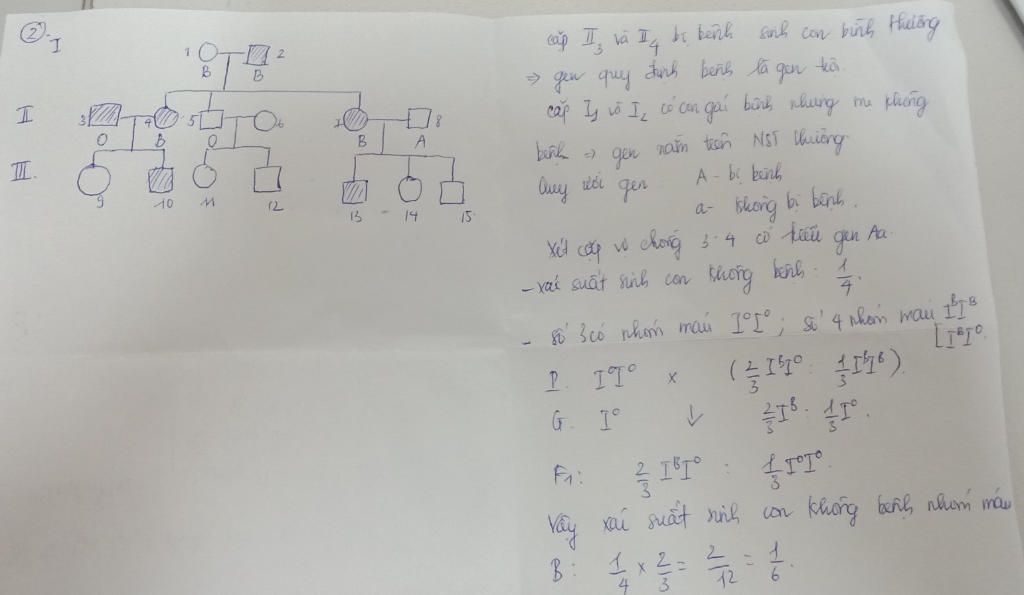 ②.
I
1
2
B
B
II
3
4
5
6
7
8
O
B
O
B
A
III.
9
10
11
12
13
14
15
cặp II3 và II4 bị bệnh sinh con bình thường
⇒ gen quy định bệnh là gen trội.
cặp I1 và I2 có con gái bệnh nhưng mẹ không
bệnh ⇒ gen nằm trên NST thường.
Quy ước gen. A - bị bệnh
a - không bị bệnh.
Xét cặp vợ chồng 3·4 có kiểu gen Aa.
- xác suất sinh con không bệnh: 1/4.
- số 3 có nhóm máu I^O I^O; số 4 nhóm máu I^B I^B
[I^B I^O.
P. I^O I^O × (2/3 I^B I^O : 1/3 I^B I^B).
G. I^O ↓ 2/3 I^B : 1/3 I^O.
F1: 2/3 I^B I^O : 1/3 I^O I^O.
Vậy xác suất sinh con không bệnh nhóm máu
B: 1/4 × 2/3 = 2/12 = 1/6.